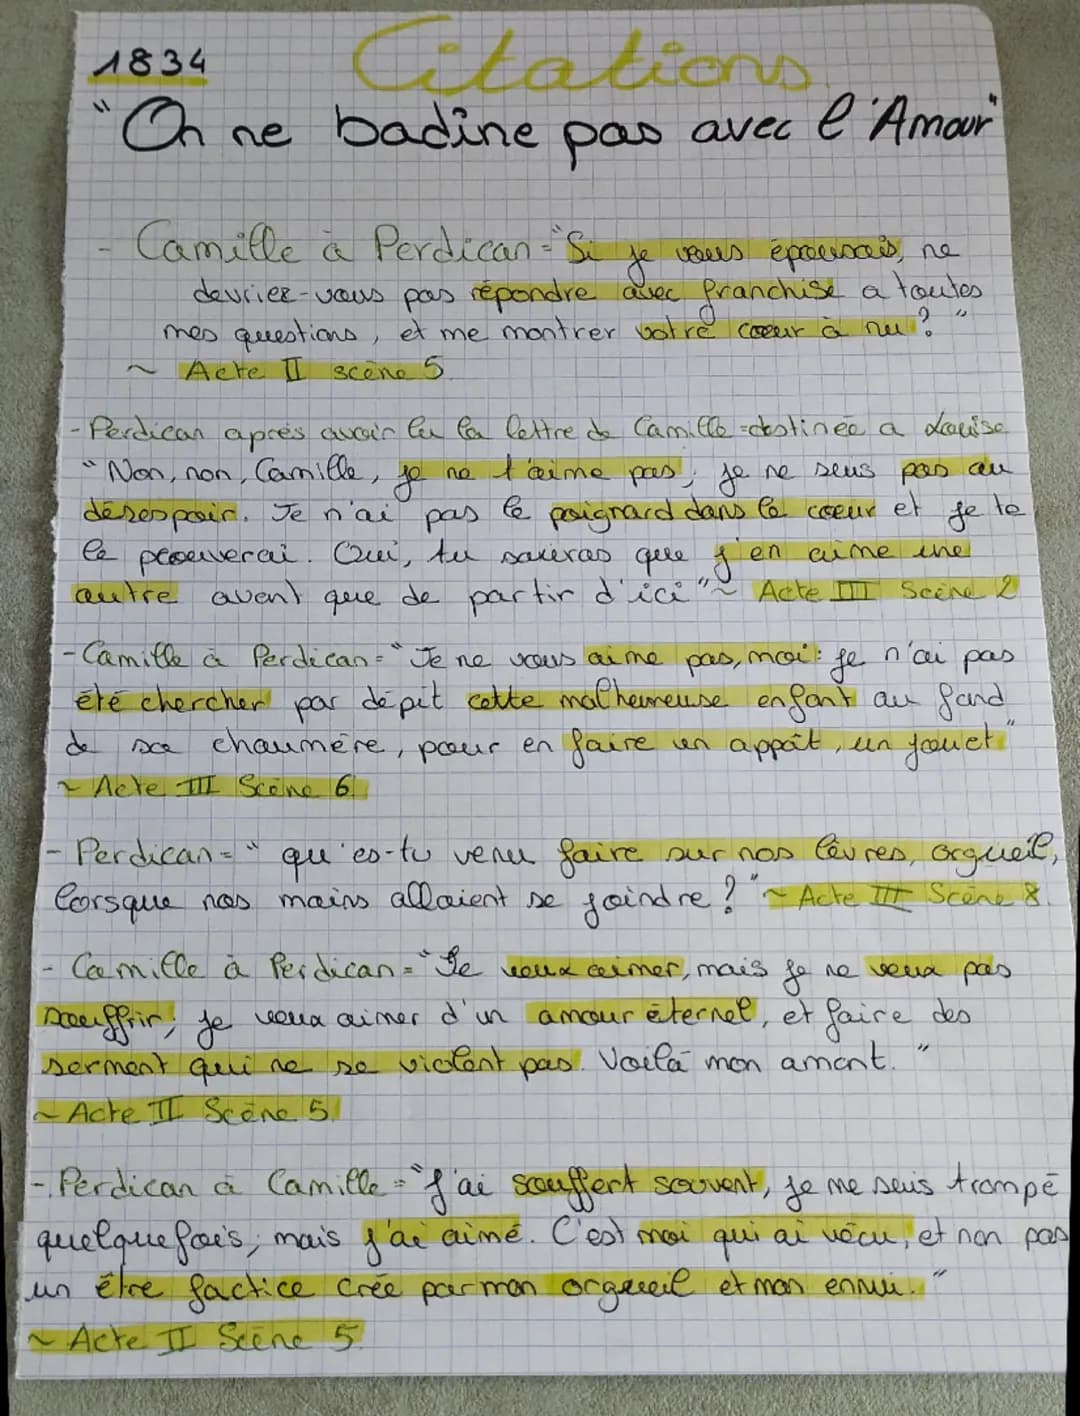 1834
Citations
"On ne badine pas avec l'Amour"
- Camille à Perdican = "Si je vous épousais, ne
devriez-vous pas répondre avec franchise a toutes
mes questions, et me montrer votre coeur à nu ? "
~ Acte II scène 5
- Perdican après avoir lu la lettre de Camille destinée a Louise
"Non, non, Camille, je ne t'aime pas ; je ne suis pas au
désespoir. Je n'ai pas le poignard dans le coeur et je te
le prouverai. Oui, tu sauras que j'en aime une
autre avant que de partir d'ici" ~ Acte III Scène 2
- Camille à Perdican = "Je ne vous aime pas, moi : je n'ai pas
été chercher par dépit cette malheureuse enfant au fond
de sa chaumère, pour en faire un appât, un jouet"
~ Acte III Scène 6
- Perdican = " qu'es-tu venu faire sur nos lèvres, orgueil,
lorsque nos mains allaient se joindre ? " ~ Acte III Scène 8.
- Camille à Perdican = "Je veux aimer, mais je ne veux pas
souffrir ; je veux aimer d'un amour éternel, et faire des
serment qui ne se violent pas. Voilà mon amant. "
~ Acte II Scène 5.
- Perdican à Camille = "J'ai souffert souvent, je me suis trompé
quelquefois, mais j'ai aimé. C'est moi qui ai vécu, et non pas
un être factice crée par mon orgueil et mon ennui. "
~ Acte II Scène 5.